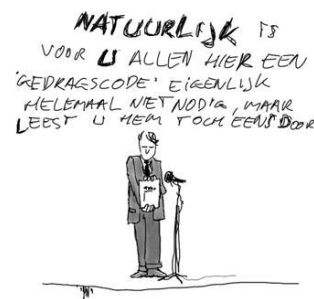 NATUURLIJK IS
VOOR U ALLEN HIER EEN
'GEDRAGSCODE' EIGENLIJK
HELEMAAL NIET NODIG, MAAR
LEEST U HEM TOCH EENS DOOR